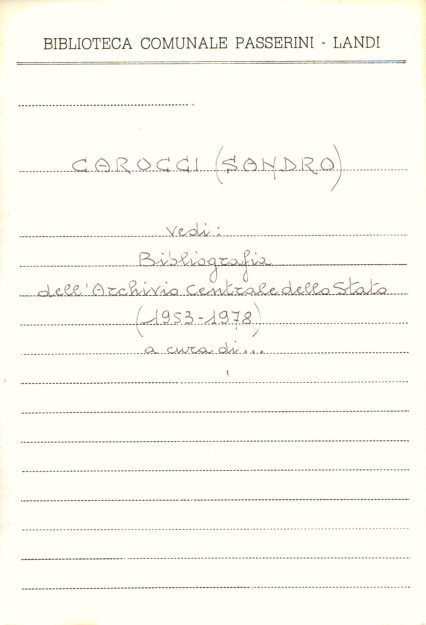 BIBLIOTECA COMUNALE PASSERINI - LANDI
CAROCCI (SANDRO)
Vedi:
Bibliografia
dell'Archivio Centrale dello Stato
(1953-1978)
a cura di...